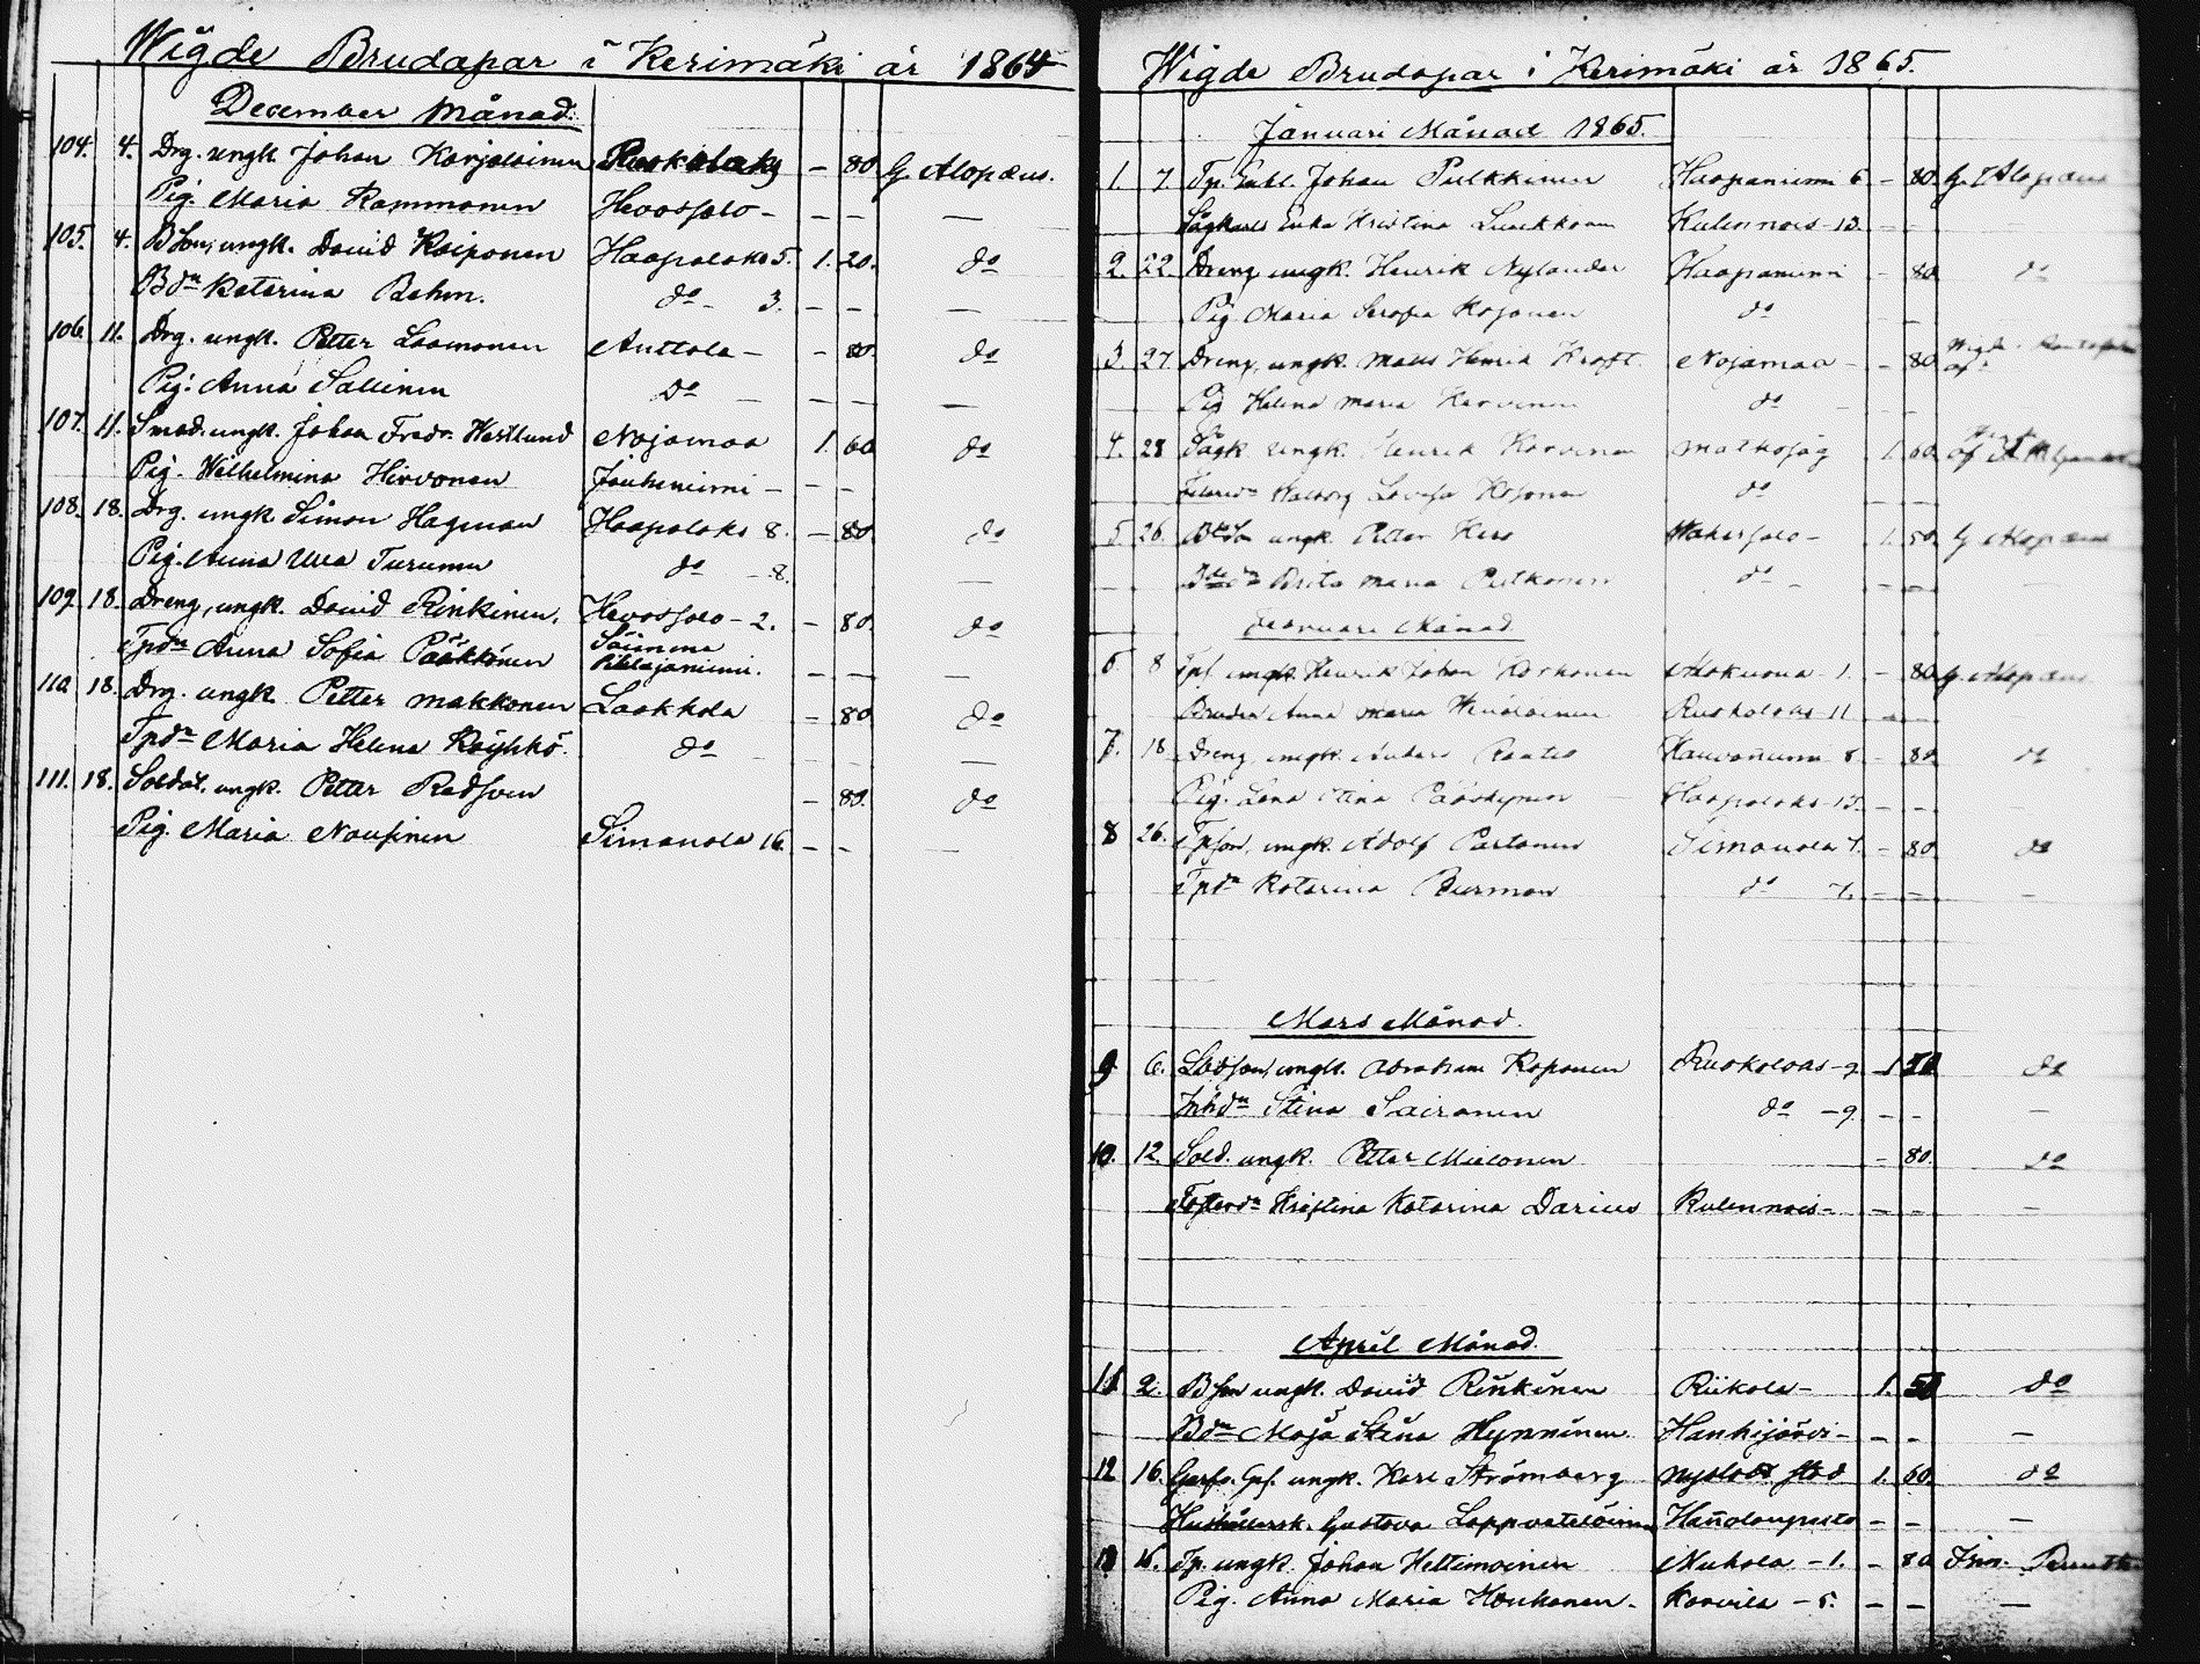 Wigde Brudapar i Kerimäki år 1864
December Månad.
104. 4. Drg. ungk. Johan Karjalainen Ruokolaks - 80 G. Alopæus.
Pig. Maria Rammonen Hevossalo - - - -
105. 4. BSon, ungk. David Koiponen Haapalaks 5. 1. 20. do
Bdn Katarina Behm. do - 3. - - -
106. 11. Drg. ungk. Petter Laamonen Anttola - - 80. do
Pig. Anna Sallinen Do - - - -
107. 11. Smed. ungk. Johan Fredr. Westlund Nojamaa 1. 60 do
Pig. Wilhelmina Hirvonen Jouhenniemi - - -
108. 18. Drg. ungk. Simon Hagman Haapalaks 8. - 80. do
Pig. Anna Ulla Turunen do - 8. -
109. 18. Dreng, ungk. David Rinkinen. Hevossalo - 2. - 80. do
Tpdn Anna Sofia Pääkkönen Säimme Pihlajaniemi. - - -
110. 18. Drg. ungk. Petter Makkonen Laakkola - 80 do
Tpdn Maria Helena Röyhkö. do - - -
111. 18. Soldat. ungk. Petter Redsven - 80. do
Pig. Maria Nousinen Simanala 16. - - -
Wigde Brudapar i Kerimäki år 1865.
Januari Månad 1865.
1. 7. Tp. Enkl. Johan Pulkkinen Haapaniemi 6 - 80. G. Alopæus
Sågkarls Enka Kristina Kulennois - 13. - -
2. 22. Dreng ungk. Henrik Nylander Haapaniemi - 80. do
Pig Maria Serafia Kosonen do - -
3. 27. Dreng, ungk. Mats Henrik Kroft. Nojamaa - - 80
Pig Helena Maria Karvinen do - -
4. 28 Sågk. ungk. Henrik Karvinen 1. 60. af
Walborg Lovisa Kosonen do - -
5. 26. ungk. Petter Kess 1. 50. G. Alopæus
Brita Maria Putkonen do - - -
Februari Månad.
6 8 Tpl. ungk. Henrik Johan Korhonen Alakuona - 1. - 80. G. Alopæus
Anna Maria Ruokolaks 11 - -
7. 18. Dreng, ungk. Anders Rautio Kauvanniemi 8 - 80. do
Pig. Lena Stina Pääskynen Haapalaks - 15. - -
8 26. Tpson, ungk. Adolf Partanen Simanala 7. - 80. do
Tpdn Katarina Burman do 7. - - -
Mars Månad.
9 6. Lbdson, ungk. Abraham Koponen Ruokolaks - 9. 1 50 do
Inhdn Stina Sairanen do - 9. - - -
10. 12. Sold. ungk. Petter Mielonen - 80. do
Fosterdn Kristina Katarina Darius Kulennois - - - -
April Månad.
11 2. BSon ungk. David Rinkinen Riikola - 1. 50 do
Bdn Maja Stina Hynninen. Hanhijärvi - - - -
12 16. ungk. Karl Strömberg Nyslott stad 1. 60. do
Hushållersk. Gustava Lappvetelainen - - -
13 16. Tp. ungk. Johan Heltimoinen Niuhola - 1. - 80
Pig. Anna Maria Houhanen - - 5. - - -